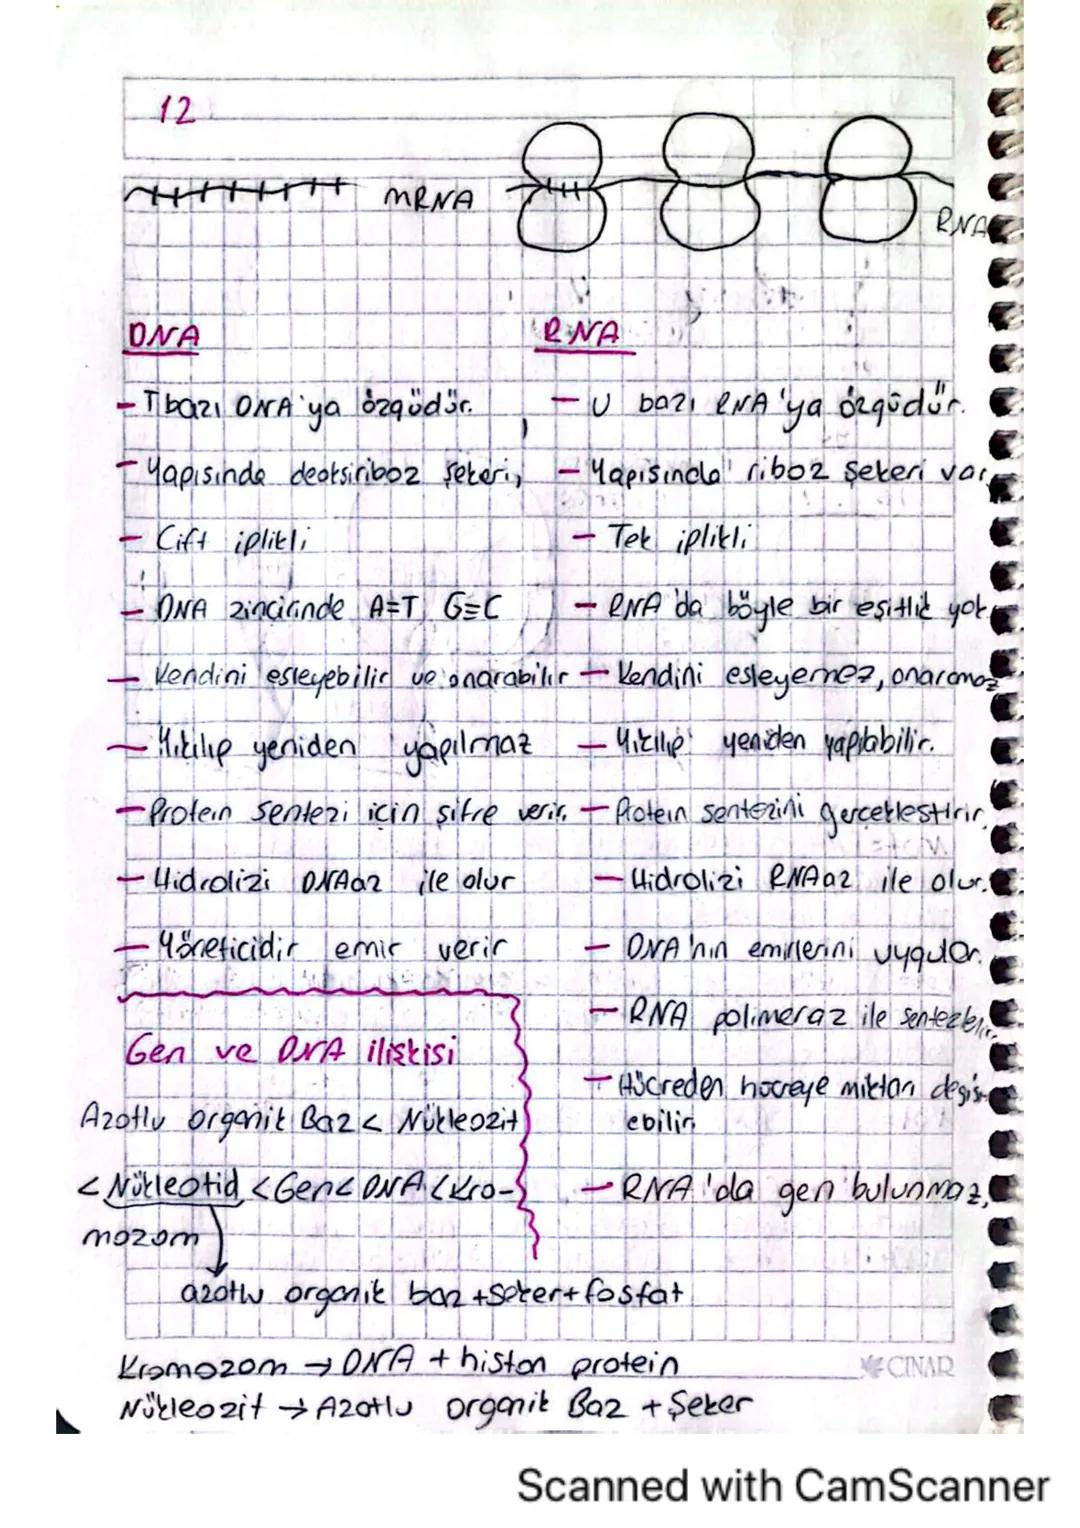 12
mRNA
RNA
DNA
- T bazı DNA'ya özgüdür.
- Yapısında deoksiriboz şekeri,
- Çift iplikli
- DNA zincirinde A=T G≡C
- Kendini eşleyebilir ve onarabilir
- Yıkılıp yeniden yapılmaz
- Protein sentezi için şifre verir.
- Hidrolizi DNAaz ile olur
- Yöneticidir emir verir
RNA
- U bazı RNA'ya özgüdür.
- Yapısında riboz şekeri var
- Tek iplikli
- RNA'da böyle bir eşitlik yok
- Kendini eşleyemez, onaramaz
- Yıkılıp yeniden yapılabilir.
- Protein sentezini gerçekleştirir.
- Hidrolizi RNAaz ile olur.
- DNA'nın emirlerini uygular.
- RNA polimeraz ile sentezlenir.
- Hücreden hücreye miktarı değiş-
ebilir.
- RNA'da gen bulunmaz.
Gen ve DNA ilişkisi
Azotlu organik Baz < Nükleozit
< Nükleotid < Gen < DNA < Kro-
mozom
azotlu organik baz + şeker + fosfat
Kromozom → DNA + histon protein
Nükleozit → Azotlu organik Baz + Şeker
ÇINAR
Scanned with CamScanner